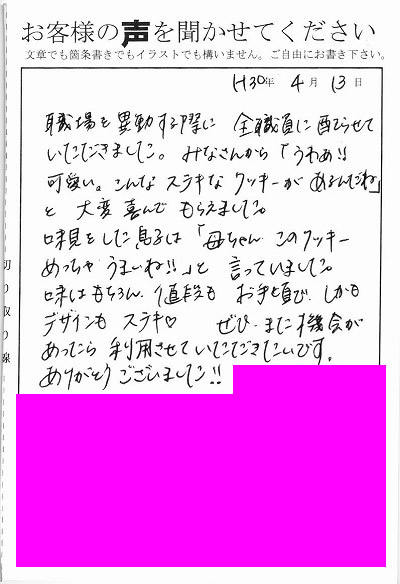 お客様の声を聞かせてください
文章でも箇条書きでもイラストでも構いません。ご自由にお書き下さい。
H30年 4月 13日
職場を異動する際に 全職員に配らせて
いただきました。みなさんから「うわぁ!!
可愛い。こんな ステキな クッキーが あるんだね」
と 大変 喜んで もらえました。
味見をした息子は「母ちゃん このクッキー
めっちゃ うまいね!!」と 言っていました。
味はもちろん、値段も お手頃で、しかも
デザインも ステキ♡ ぜひ また機会が
あったら 利用させていただきたいです。
ありがとうございました!!
切り取り線